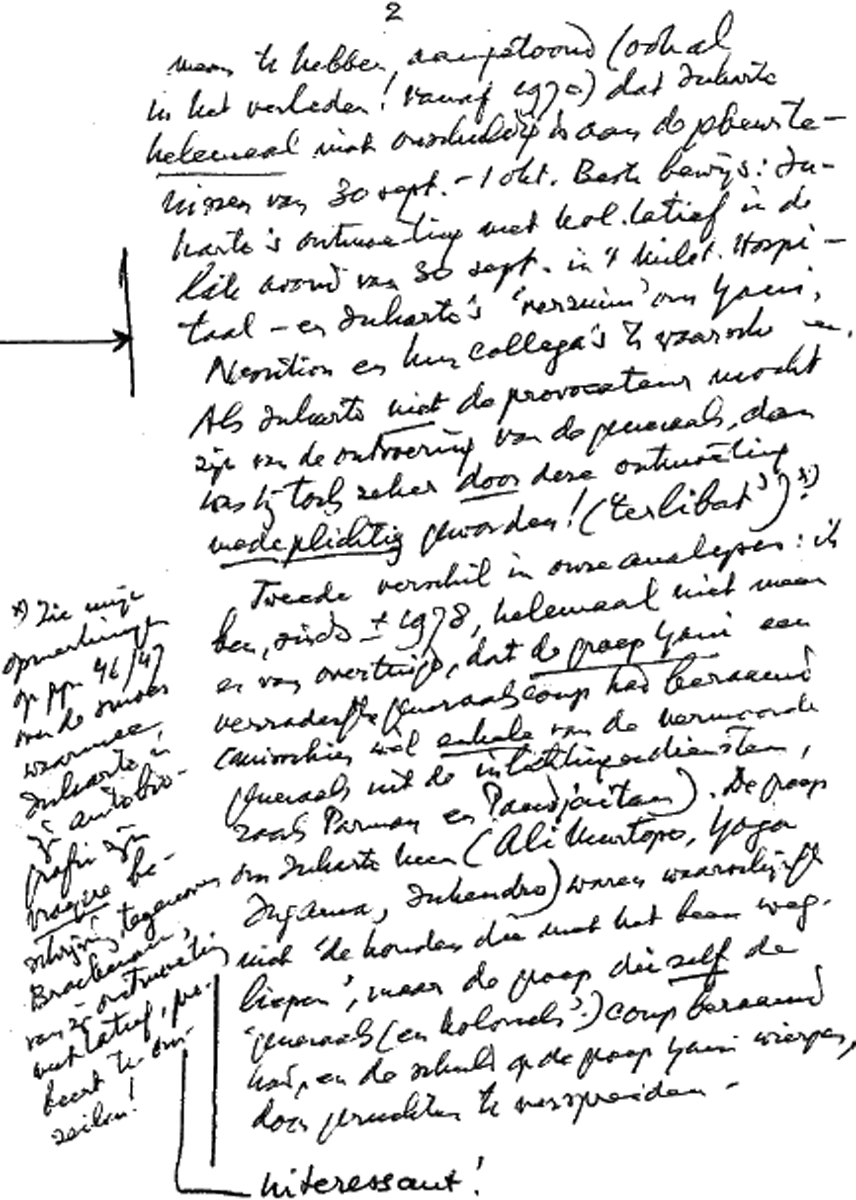 2
meen te hebben, aangetoond (ook al
in het verleden! vanaf 1970) dat Suharto
helemaal niet onschuldig is aan de gebeurte-
nissen van 30 sept. - 1 okt. Beste bewijs: Su-
harto's ontmoeting met kol. Latief in de
late avond van 30 sept. in 't Milit. Hospi-
taal - en Suharto's 'verzuim' om Yani,
Nasution en hun collega's te waarschuwen.
Als Suharto niet de provocateur mocht
zijn van de ontvoering van de generaals, dan
was hij toch zeker door deze ontmoeting
medeplichtig geworden! ("terlibat") *)
Tweede verschil in onze analyses: ik
ben, sinds ± 1978, helemaal niet meer
er van overtuigd, dat de groep Yani een
verraderlijke generaalscoup had beraamd
(misschien wel enkele van de vermoorde
generaals uit de inlichtingendiensten,
zoals Parman en Pandjaitan). De groep
om Suharto heen (Ali Murtopo, Yoga
Sugama, Suhendro) waren waarschijnlijk
niet 'de honden die met het been weg-
liepen', maar de groep die zelf de
'generaals (en kolonels?) coup beraamd
had, en de schuld op de groep Yani wierpen,
door geruchten te verspreiden -
interessant!
*) Zie mijn
opmerkingen
op pp. 46/47
over de
waarmee
Suharto in
z'n autobio-
grafie zijn
vroegere be-
schrijving, tegenover
Brackman,
van z'n ontmoeting
met Latief, pro-
beert te om-
zeilen!